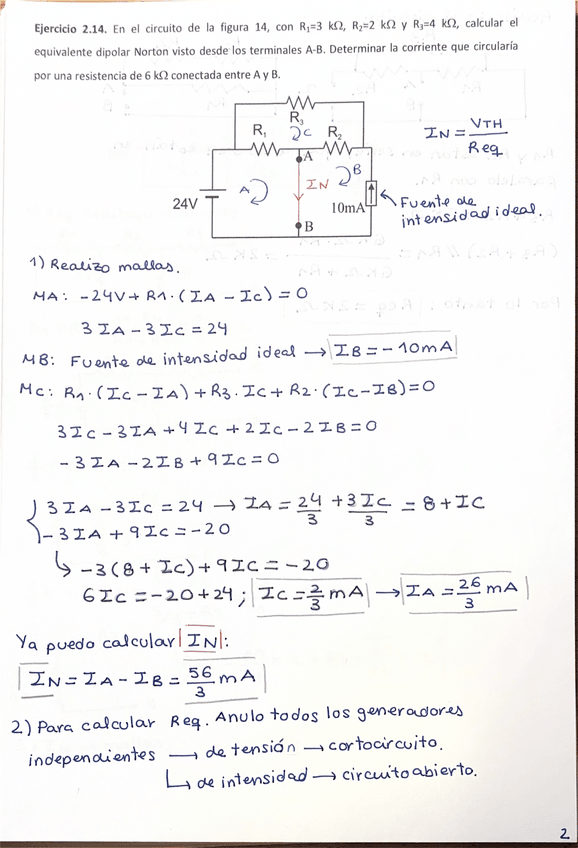 Ejercicio 2.14. En el circuito de la figura 14, con R₁=3 kΩ, R₂=2 kΩ y R₃=4 kΩ, calcular el
equivalente dipolar Norton visto desde los terminales A-B. Determinar la corriente que circularía
por una resistencia de 6 kΩ conectada entre A y B.
R₃
R₁
C
R₂
IN = VTH / Req
A
A
IN
B
24V
10mA
Fuente de
intensidad ideal.
B
1) Realizo mallas.
MA: -24V + R1·(IA - IC) = 0
3 IA - 3 IC = 24
MB: Fuente de intensidad ideal → IB = -10mA
MC: R1·(IC - IA) + R3·IC + R2·(IC - IB) = 0
3IC - 3IA + 4IC + 2IC - 2IB = 0
-3IA - 2IB + 9IC = 0
3IA - 3IC = 24 → IA = 24/3 + 3IC/3 = 8 + IC
-3IA + 9IC = -20
↳ -3(8 + IC) + 9IC = -20
6IC = -20 + 24 ; IC = 2/3 mA → IA = 26/3 mA
Ya puedo calcular IN:
IN = IA - IB = 56/3 mA
2) Para calcular Req. Anulo todos los generadores
independientes → de tensión → cortocircuito.
↳ de intensidad → circuito abierto.
2